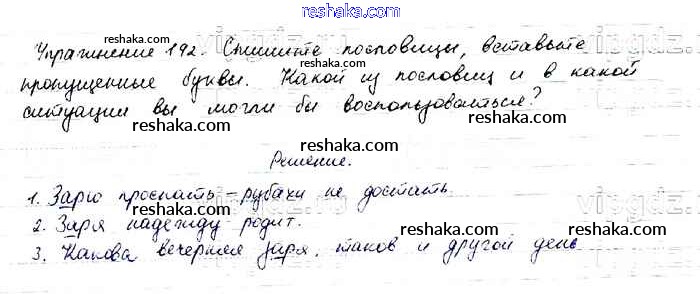 reshaka.com
Упражнение 192. Спишите пословицы, вставьте
пропущенные буквы. Какой из пословиц и в какой
ситуации вы могли бы воспользоваться?
reshaka.com
reshaka.com
reshaka.com
Решение.
1. Зарю проспать – рубахи не достать.
2. Заря надежду родит.
3. Какова вечерняя заря, таков и другой день.
reshaka.com
reshaka.com
reshaka.com
reshaka.com